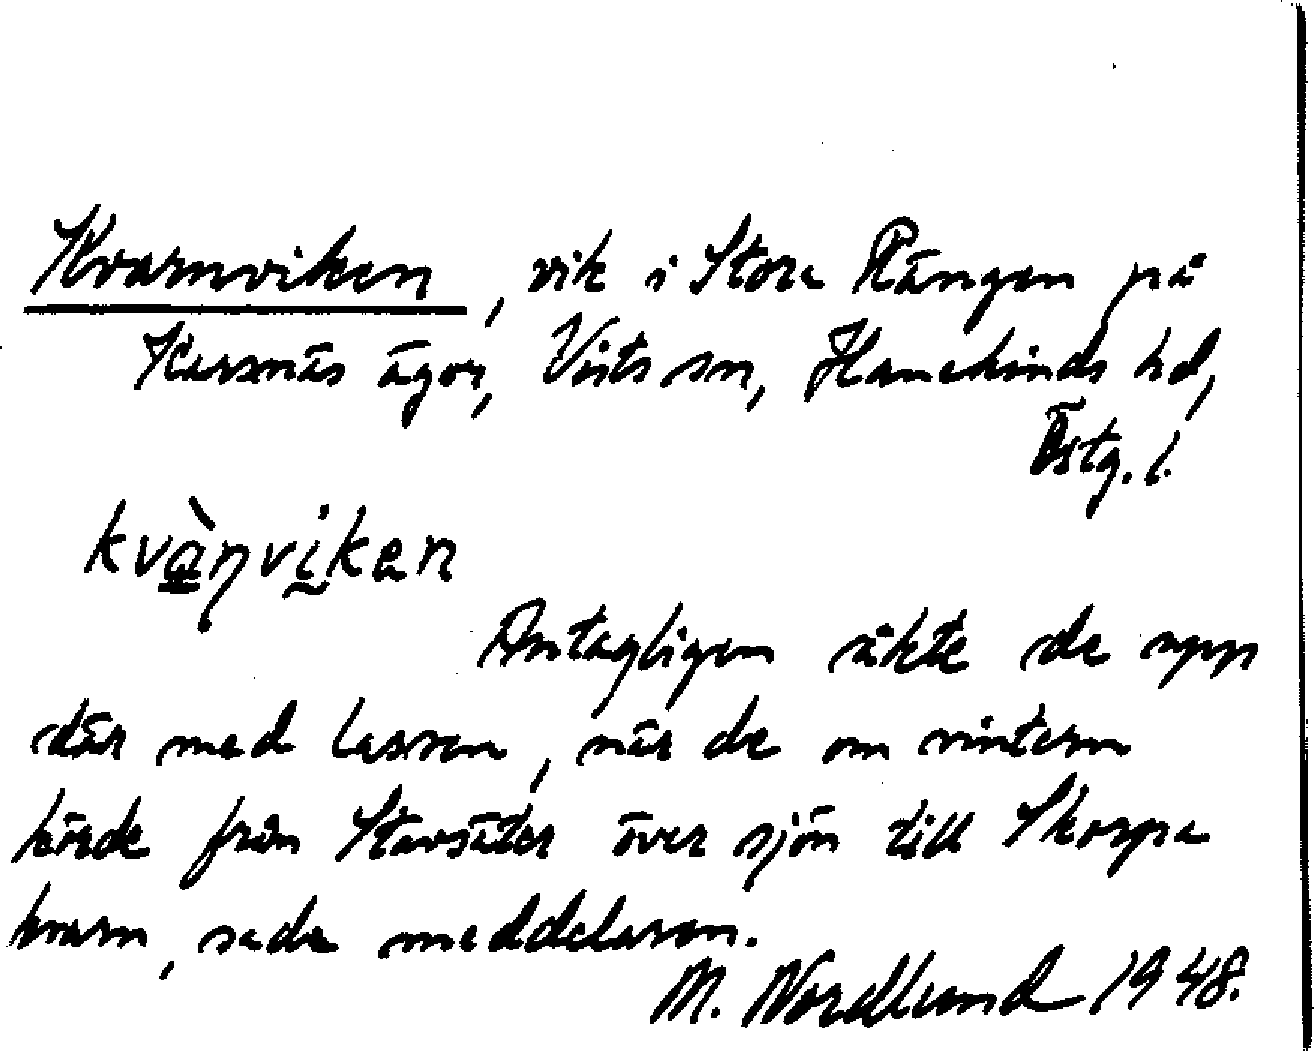 Kvarnviken, vik i Stora Rängen på
Kersnäs ägor, Vists sn, Hanekinds hd,
Östg. l.
kvà̱ṇvi̱ken
Antagligen åkte de upp
där med lassen, när de om vintern
körde från Stavsäter över sjön till Skorpa
kvarn, sade meddelaren.
M. Nordlund 1948.